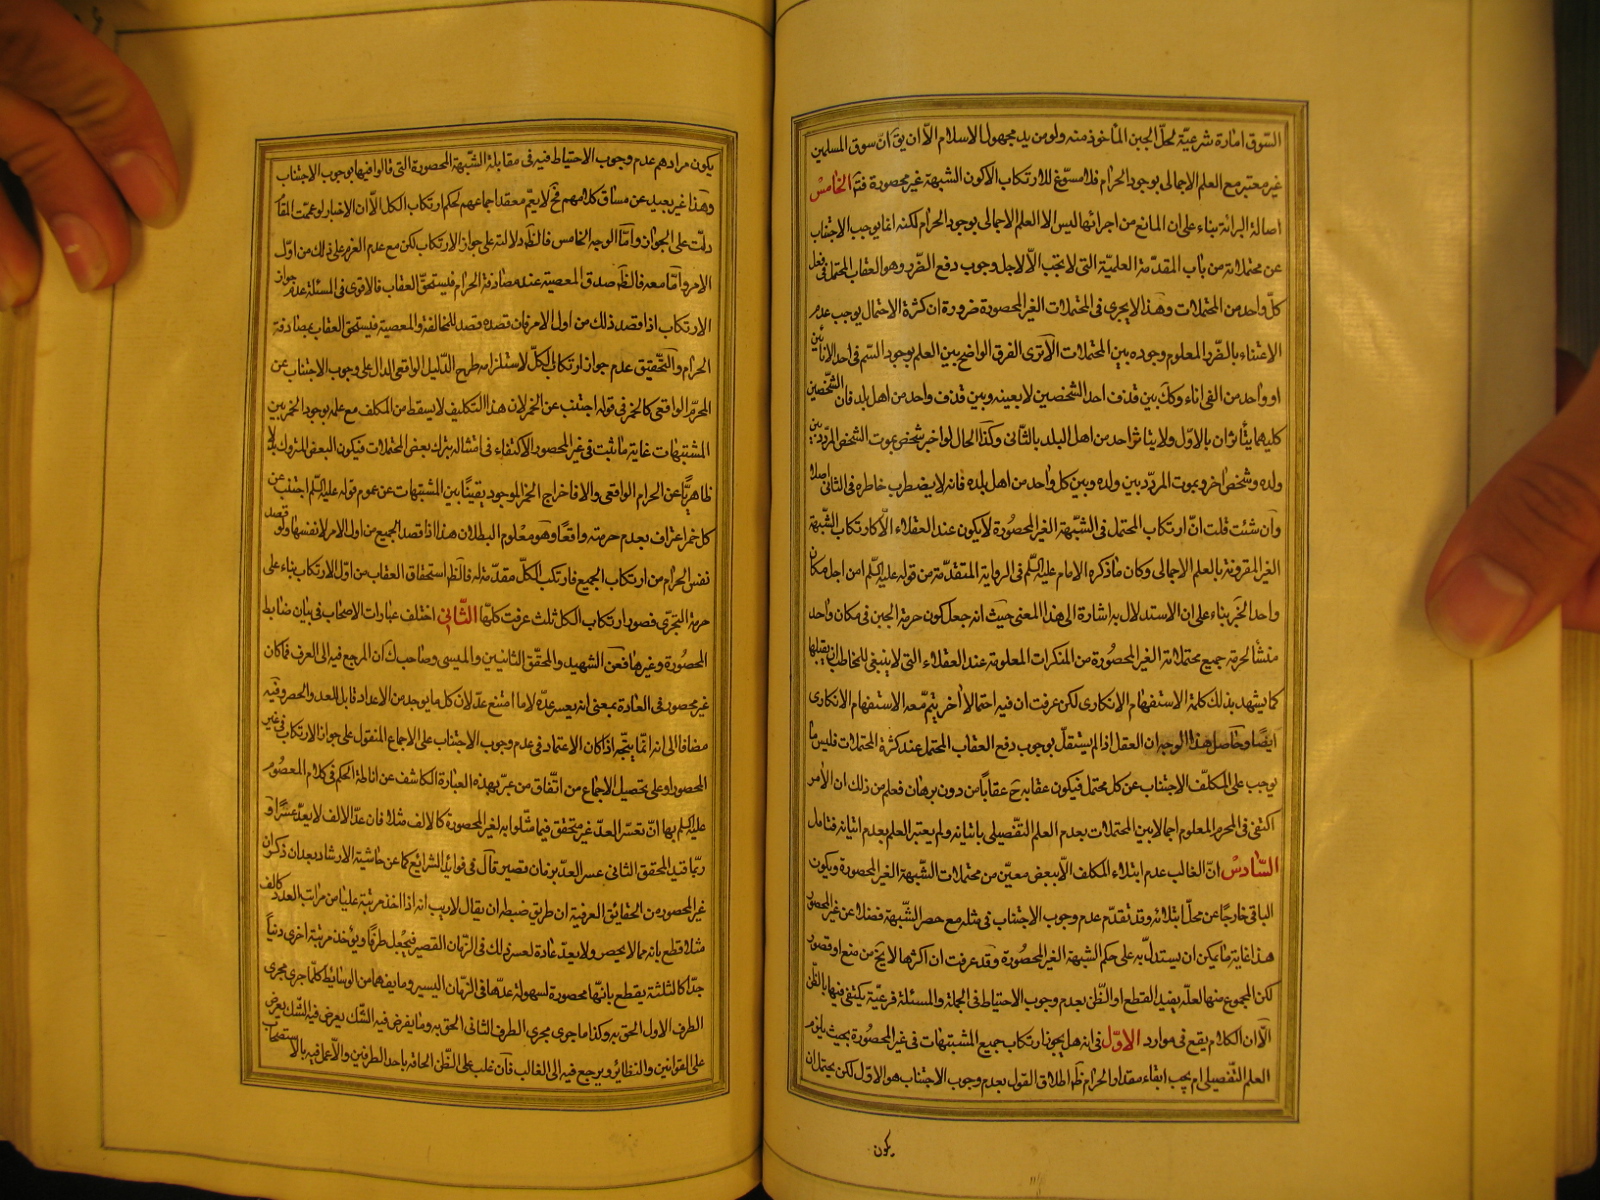 السّوق امارة شرعيّة لحلّ الجبن المأخوذ منه ولو من يد مجهول الاسلام الاّ ان يقَ انّ سوق المسلمين
غير معتبر مع العلم الاجمالى بوجود الحرام فلا مسوّغ للارتكاب الا كون الشبهة غير محصورة فتم الخامسْ
اصالة البرائة بناء على ان المانع من اجرائها ليس الا العلم الاجمالى بوجود الحرام لكنه انما يوجب الاجتناب
عن محتملاته من باب المقدّمة العلميّة التى لا يجب الاّ لاجل وجوب دفع الضّرر وهو العقاب المحتمل فى فعل
كلّ واحد من المحتملات وهذا لا يجرى فى المحتملات الغير المحصورة ضرورة ان كثرة الاحتمال يوجب عدم
الاعتناء بالضّرر المعلوم وجوده بين المحتملات الا ترى الفرق الواضح بين العلم بوجود السّم فى احد الانائين
او واحد من الفى اناء وكك بين قذف احد الشخصين لا بعينه وبين قذف واحد من اهل بلد فان الشّخصين
كليهما يتأثران بالاوّل ولا يتاثر احد من اهل البلد بالثّانى وكذا الحال لو اخبر شخص بموت الشخص المردّد بين
ولده وشخص اخر وبموت المردّد بين ولده وبين كل واحد من اهل بلده فانه لا يضطرب خاطره فى الثانى اصلا
وان شئت قلت انّ ارتكاب المحتمل فى الشّبهة الغير المحصورة لا يكون عند العقلاء الاّ كارتكاب الشّبهة
الغير المقرونة بالعلم الاجمالى وكان ما ذكره الامام عليه السّلم فى الرواية المتقدّمة من قوله عليه السّلم امن اجل مكان
واحد الخَبر بناء على ان الاستدلال به اشارة الى هذا المعنى حيث انه جعل كون حرمة الجبن فى مكان واحد
منشأ لحرمة جميع محتملاته الغير المحصورة من المنكرات المعلومة عند العقلاء التى لا ينبغى للمخاطب ان يقبلها
كما يشهد بذلك كلمة الاستفهام الانكارى لكن عرفت ان فيه احتمالا اخر يتمّ معه الاستفهام الانكارى
ايضًا وحاصل هذا الوجه ان العقل اذا لم يستقلّ بوجوب دفع العقاب المحتمل عند كثرة المحتملات فليس ما
يوجب على المكلّف الاجتناب عن كل محتمل فيكون عقابه حَ عقاباً من دون برهان فعلم من ذلك ان الامر
اكتفى فى المحرم المعلوم اجمالا بين المحتملات بعدم العلم التفصيلى باتيانه ولم يعتبر العلم بعدم اتيانه فتامل
السّادسْ انّ الغالب عدم ابتلاء المكلف الاّ ببعض معيّن من محتملات الشّبهة الغير المحصورة ويكون
الباقى خارجًا عن محلّ ابتلائه وقد تقدّم عدم وجوب الاجتناب فى مثله مع حصر الشّبهة فضلا عن غير المحصور
هذا غاية ما يمكن ان يستدلّ به على حكم الشبهة الغير المحصورة وقد عرفت ان اكثرها لا يخ من منع او قصور
لكن المجموع منها لعلّه يفيد القطع او الظّن بعدم وجوب الاحتياط فى الجملة والمسئلة فرعيّة يكتفى فيها بالظّن
الاّ ان الكلام يقع فى موارد الاوّل فى انه هل يجوز ارتكاب جميع المشتبهات فى غير المحصورة بحيث يلزم
العلم التّفصيلى ام يجب ابقاء مقدار الحرام ظَم اطلاق القول بعدم وجوب الاجتناب هو الاوّل لكن يحتمل ان
يكون
يكون مرادهم عدم وجوب الاحتياط فيه فى مقابلة الشّبهة المحصورة التى قالوا فيها بوجوب الاجتناب
وهذا غير بعيد عن مساق كلامهم فحَ لا يعمّ معقد اجماعهم لحكم ارتكاب الكل الاّ ان الاخبار لو عمت المقا
دلّت على الجواز وامّا الوجه الخامس فالظَم دلالته على جواز الارتكاب لكن مع عدم العزم على ذلك من اوّل
الامر وامّا معه فالظَم صدق المعصية عند مصادفة الحرام فيستحقّ العقاب فالاقوى فى المسئلة عدم جواز
الارتكاب اذا قصد ذلك من اول الامر فان قصده قصد للمخالفة والمعصية فيستحق العقاب بمصادفة
الحرام والتّحقيق عدم جواز ارتكاب الكلّ لاستلزامه طرح الدّليل الواقعى الدال على وجوب الاجتناب عن
المحرّم الواقعى كالخمر فى قوله اجتنب عن الخمر لان هذا التكليف لا يسقط من المكلف مع علمه بوجود الخمر بين
المشتبهات غاية ما ثبت فى غير المحصور الاكتفاء فى امتثاله بترك بعض المحتملات فيكون البعض المتروك بدلا
ظاهريًّا عن الحرام الواقعى والا فاخراج الخمر الموجود يقينًا بين المشتبهات عن عموم قوله عليه السّلم اجتنب عن
كل خمر اعتراف بعدم حرمته واقعًا وهو معلوم البطلان هذا اذا قصد الجميع من اول الامر لانفسها ولو قصد
نفس الحرام من ارتكاب الجميع فارتكب الكلّ مقدّمة له فالظَم استحقاق العقاب من اوّل الارتكاب بناء على
حرمة التجرّى فصور ارتكاب الكل ثلث عرفت كلّها الثّانى اختلف عبارات الاصحاب فى بيان ضابط
المحصورة وغيرها فعن الشهيد والمحقّق الثانيين والميسى وصاحب ك ان المرجع فيه الى العرف فما كان
غير محصور فى العادة بمعنى انه يعسر عدّه لا ما امتنع عدّ لان كل ما يوجد من الاعداد قابل للعد والحصر وفيه
مضافا الى انه انّما يتّجه اذا كان الاعتماد فى عدم وجوب الاجتناب على الاجماع المنقول على جواز الارتكاب فى غير
المحصور او على تحصيل الاجماع من اتّفاق من عبّر بهذه العبارة الكاشف عن اناطة الحكم فى كلام المعصوم
عليه السلم بها انّ تعسّر العدّ غير متحقق فيما مثّلوا به لغير المحصورة كالالف مثلا فان عدّ الالف لا يعدّ عسرًا و
ربّما قيد المحقق الثانى عسر العد بزمان قصير قال فى فوايد الشرائع كما عن حاشية الارشاد بعد ان ذكر ان
غير المحصورة من الحقائق العرفية ان طريق ضبطه ان يقال لا ريب انه اذا اخذ مرتبة عليا من مراتب العدد كالف
مثلا قطع بانه مما لا يحصر ولا يعدّ عادة لعسر ذلك فى الزّمان القصير فيجُعل طرفًا ويؤخذ مرتبة اخرى دنياً
جدّا كالثلثة يقطع بانّها محصورة لسهولة عدّها فى الزّمان اليسير وما بينهما من الوسايط كلّما جرى مجرى
الطرف الاول الحق به وكذا ما جرى مجرى الطرف الثانى الحق به وما يفرض فيه الشّك يعرض فيه الشّك يعرض
على القوانين والنظائر ويرجع فيه الى الغالب فان غلب على الظّن الحاقه باحد الطرفين والاّ عمل فيه بالاستصحاب